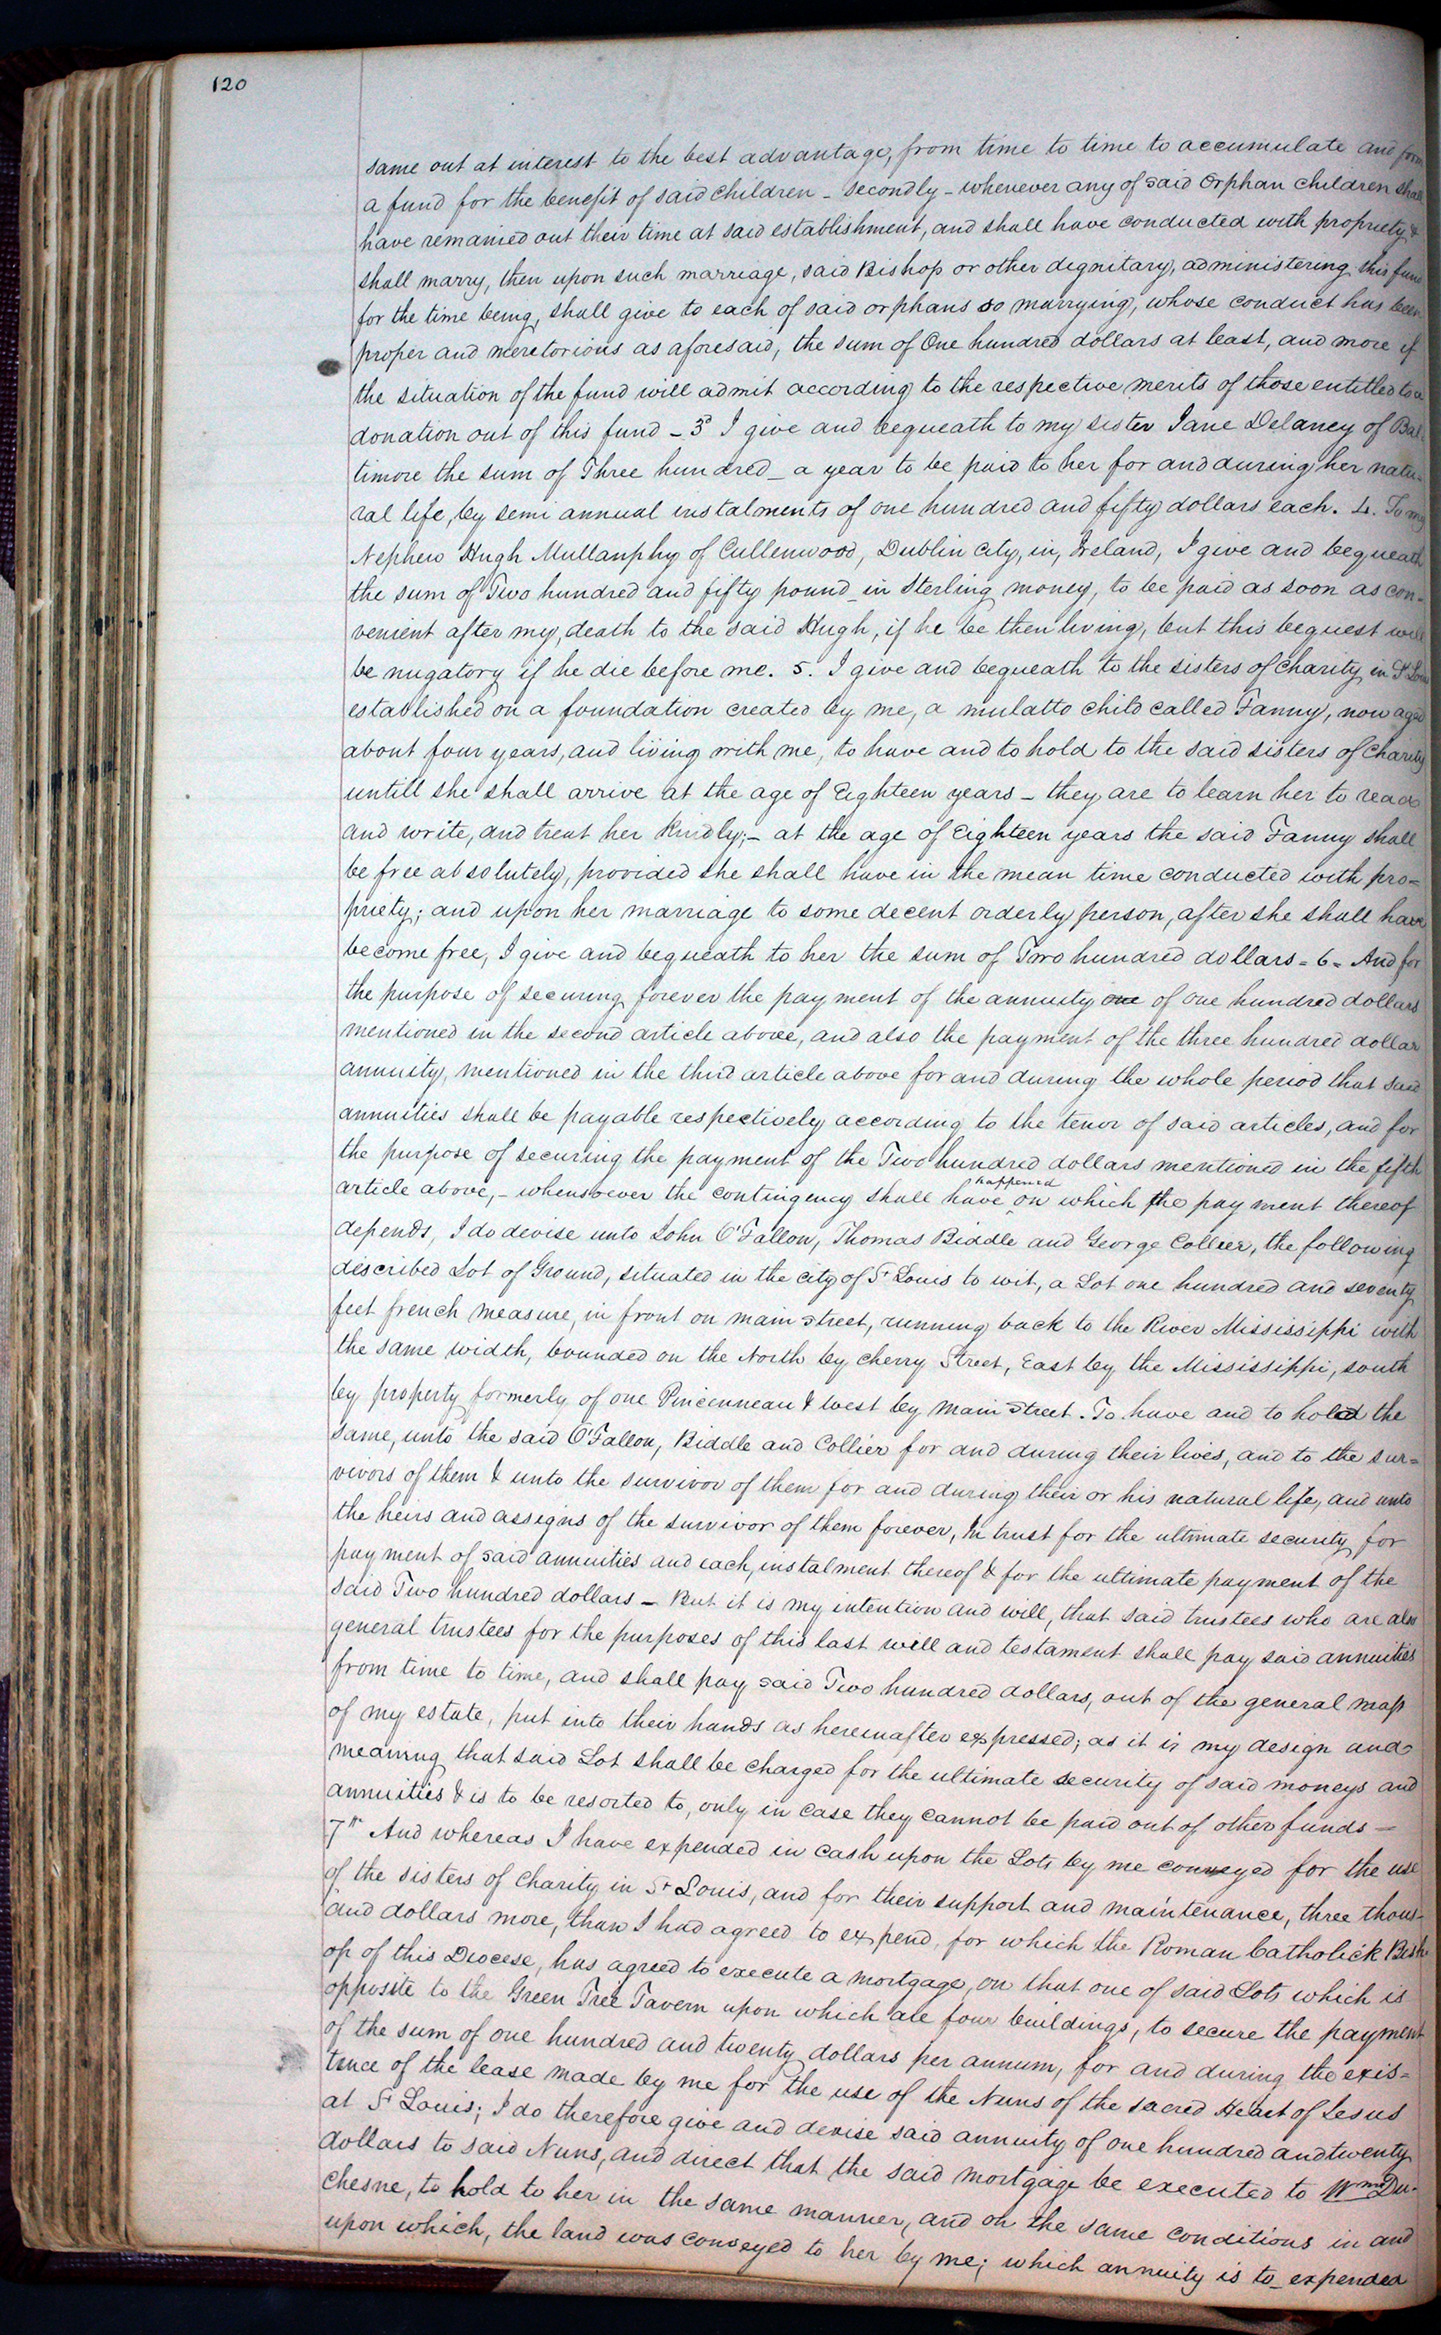 120
same out at interest to the best advantage, from time to time to accumulate and form
a fund for the benefit of said children - secondly - whenever any of said Orphan children shall
have remanied out their time at said establishment, and shall have conducted with propriety &
shall marry, then upon such marriage, said Bishop or other dignitary, administering this fund
for the time being, shall give to each of said orphans so marrying, whose conduct has been
proper and meretorious as aforesaid, the sum of One hundred dollars at least, and more if
the situation of the fund will admit according to the respective merits of those entitled to a
donation out of this fund - 3d I give and bequeath to my sister Jane Delaney of Bal-
timore the sum of Three hundred _ a year to be paid to her for and during her natu-
ral life, by semi annual instalments of one hundred and fifty dollars each. 4. To my
Nephew Hugh Mullanphy of Cullenwood, Dublin City, in, Ireland, I give and bequeath
the sum of Two hundred and fifty pound _ in Sterling money, to be paid as soon as con-
venient after my, death to the said Hugh, if he be then living, but this bequest will
be nugatory if he die before me. 5. I give and bequeath to the sisters of Charity in St Louis
established on a foundation created by me, a mulatto child called Fanny, now aged
about four years, and living with me, to have and to hold to the said sisters of Charity
untill she shall arrive at the age of Eighteen years - they are to learn her to read
and write, and treat her kindly; - at the age of Eighteen years the said Fanny shall
be free absolutely, provided she shall have in the mean time conducted with pro=
priety; and upon her marriage to some decent orderly person, after she shall have
become free, I give and bequeath to her the sum of Two hundred dollars = 6 = And for
the purpose of securing forever the payment of the annuity one of one hundred dollars
mentioned in the second article above, and also the payment of the three hundred dollar
annuity, mentioned in the third article above for and during the whole period that said
annuities shall be payable respectively according to the tenor of said articles, and for
the purpose of securing the payment of the Two hundred dollars mentioned in the fifth
article above, - whensoever the contingency shall have happened on which the payment thereof
depends, I do devise unto John O'Fallon, Thomas Biddle and George Collier, the following
described Lot of Ground, situated in the city of St Louis to wit, a Lot one hundred and seventy
feet french measure, in front on main street, running back to the River Mississippi with
the same width, bounded on the North by Cherry Street, East by the Mississippi, south
by property formerly of one Pincenneau & west by Main Street. To have and to hold the
same, unto the said O'Fallon, Biddle and Collier for and during their lives, and to the sur=
vivors of them & unto the survivor of them for and during their or his natural life, and unto
the heirs and assigns of the survivor of them forever, In trust for the ultimate security for
payment of said annuities and each, instalment thereof & for the ultimate payment of the
said Two hundred dollars - But it is my intention and will, that said trustees who are also
general trustees for the purposes of this last will and testament shall pay said annuities
from time to time, and shall pay said Two hundred dollars, out of the general mass
of my estate, put into their hands as hereinafter expressed; as it is my design and
meaning that said Lot shall be charged for the ultimate security of said moneys and
annuities & is to be resorted to, only in case they cannot be paid out of other funds =
7th And whereas I have expended in cash upon the Lots by me conveyed for the use
of the sisters of Charity in St Louis, and for their support and maintenance, three thous-
and dollars more, than I had agreed to expend, for which the Roman Catholick Bish-
op of this Diocese, has agreed to execute a mortgage, on that one of said Lots which is
opposite to the Green Tree Tavern upon which are four buildings, to secure the payment
of the sum of one hundred and twenty dollars per annum, for and during the exis=
tence of the lease made by me for the use of the Nuns of the Sacred Heart of Jesus
at St Louis; I do therefore give and devise said annuity of one hundred and twenty
dollars to said Nuns, and direct that the said mortgage be executed to Du-
chesne, to hold to her in the same manner, and on the same conditions in and
upon which, the land was conveyed to her by me; which annuity is to _ expended